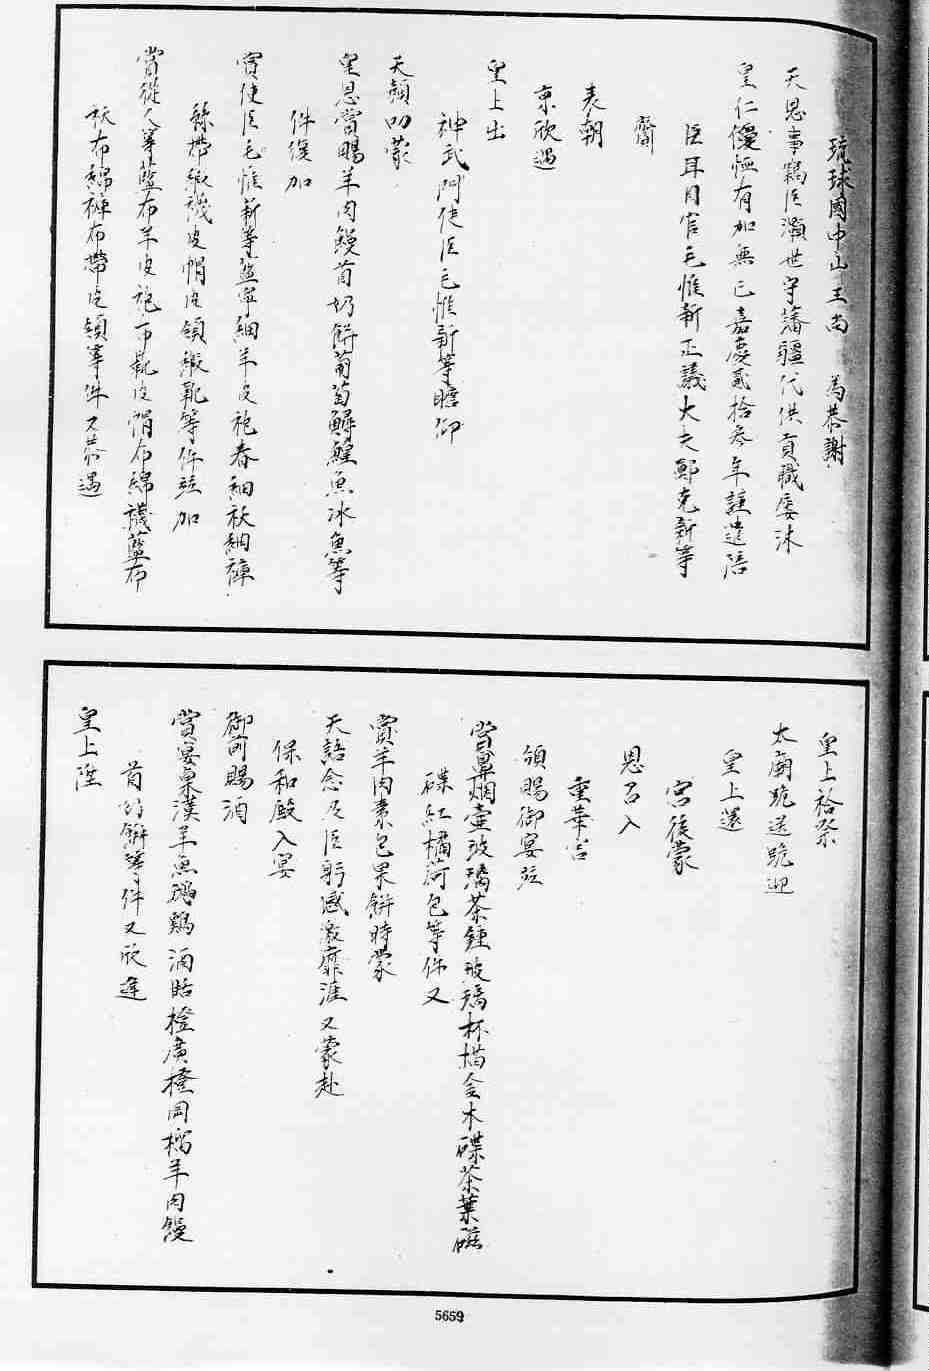 琉球國中山王尚　為恭謝
天恩事竊臣灝世守藩疆代供貢職屢沐
皇仁優恤有加無已嘉慶貳拾叁年謹遣陪
臣耳目官毛惟新正議大夫鄭克新等
齎
表朝
京欣遇
皇上出
神武門使臣毛惟新等瞻仰
天顏叩蒙
皇恩嘗賜羊肉饅首奶餅葡萄鱘鰉魚冰魚等
件復加
賞使臣毛惟新等藍寧綢羊皮袍春綢袄綢褲
絲帶緞襪皮帽皮領緞靴等件竝加
賞從人等藍布羊皮袍布靴皮帽布綿襪藍布
袄布綿褲布帶皮領等件又恭遇
皇上祫祭
太廟跪送跪迎
皇上還
宮後蒙
恩召入
重華宮
領賜御宴竝
嘗鼻烟壷玻璃茶鍾玻璃杯描金木碟茶葉磁
碟紅橘荷包等件又
賞羊肉素包果餅時蒙
天語念及臣躬感激靡涯又蒙赴
保和殿入宴
御前賜酒
嘗宴桌漢羊魚鷄酒橙廣橙岡榴羊肉饅
首奶餅等件又欣逢
皇上陞
5659